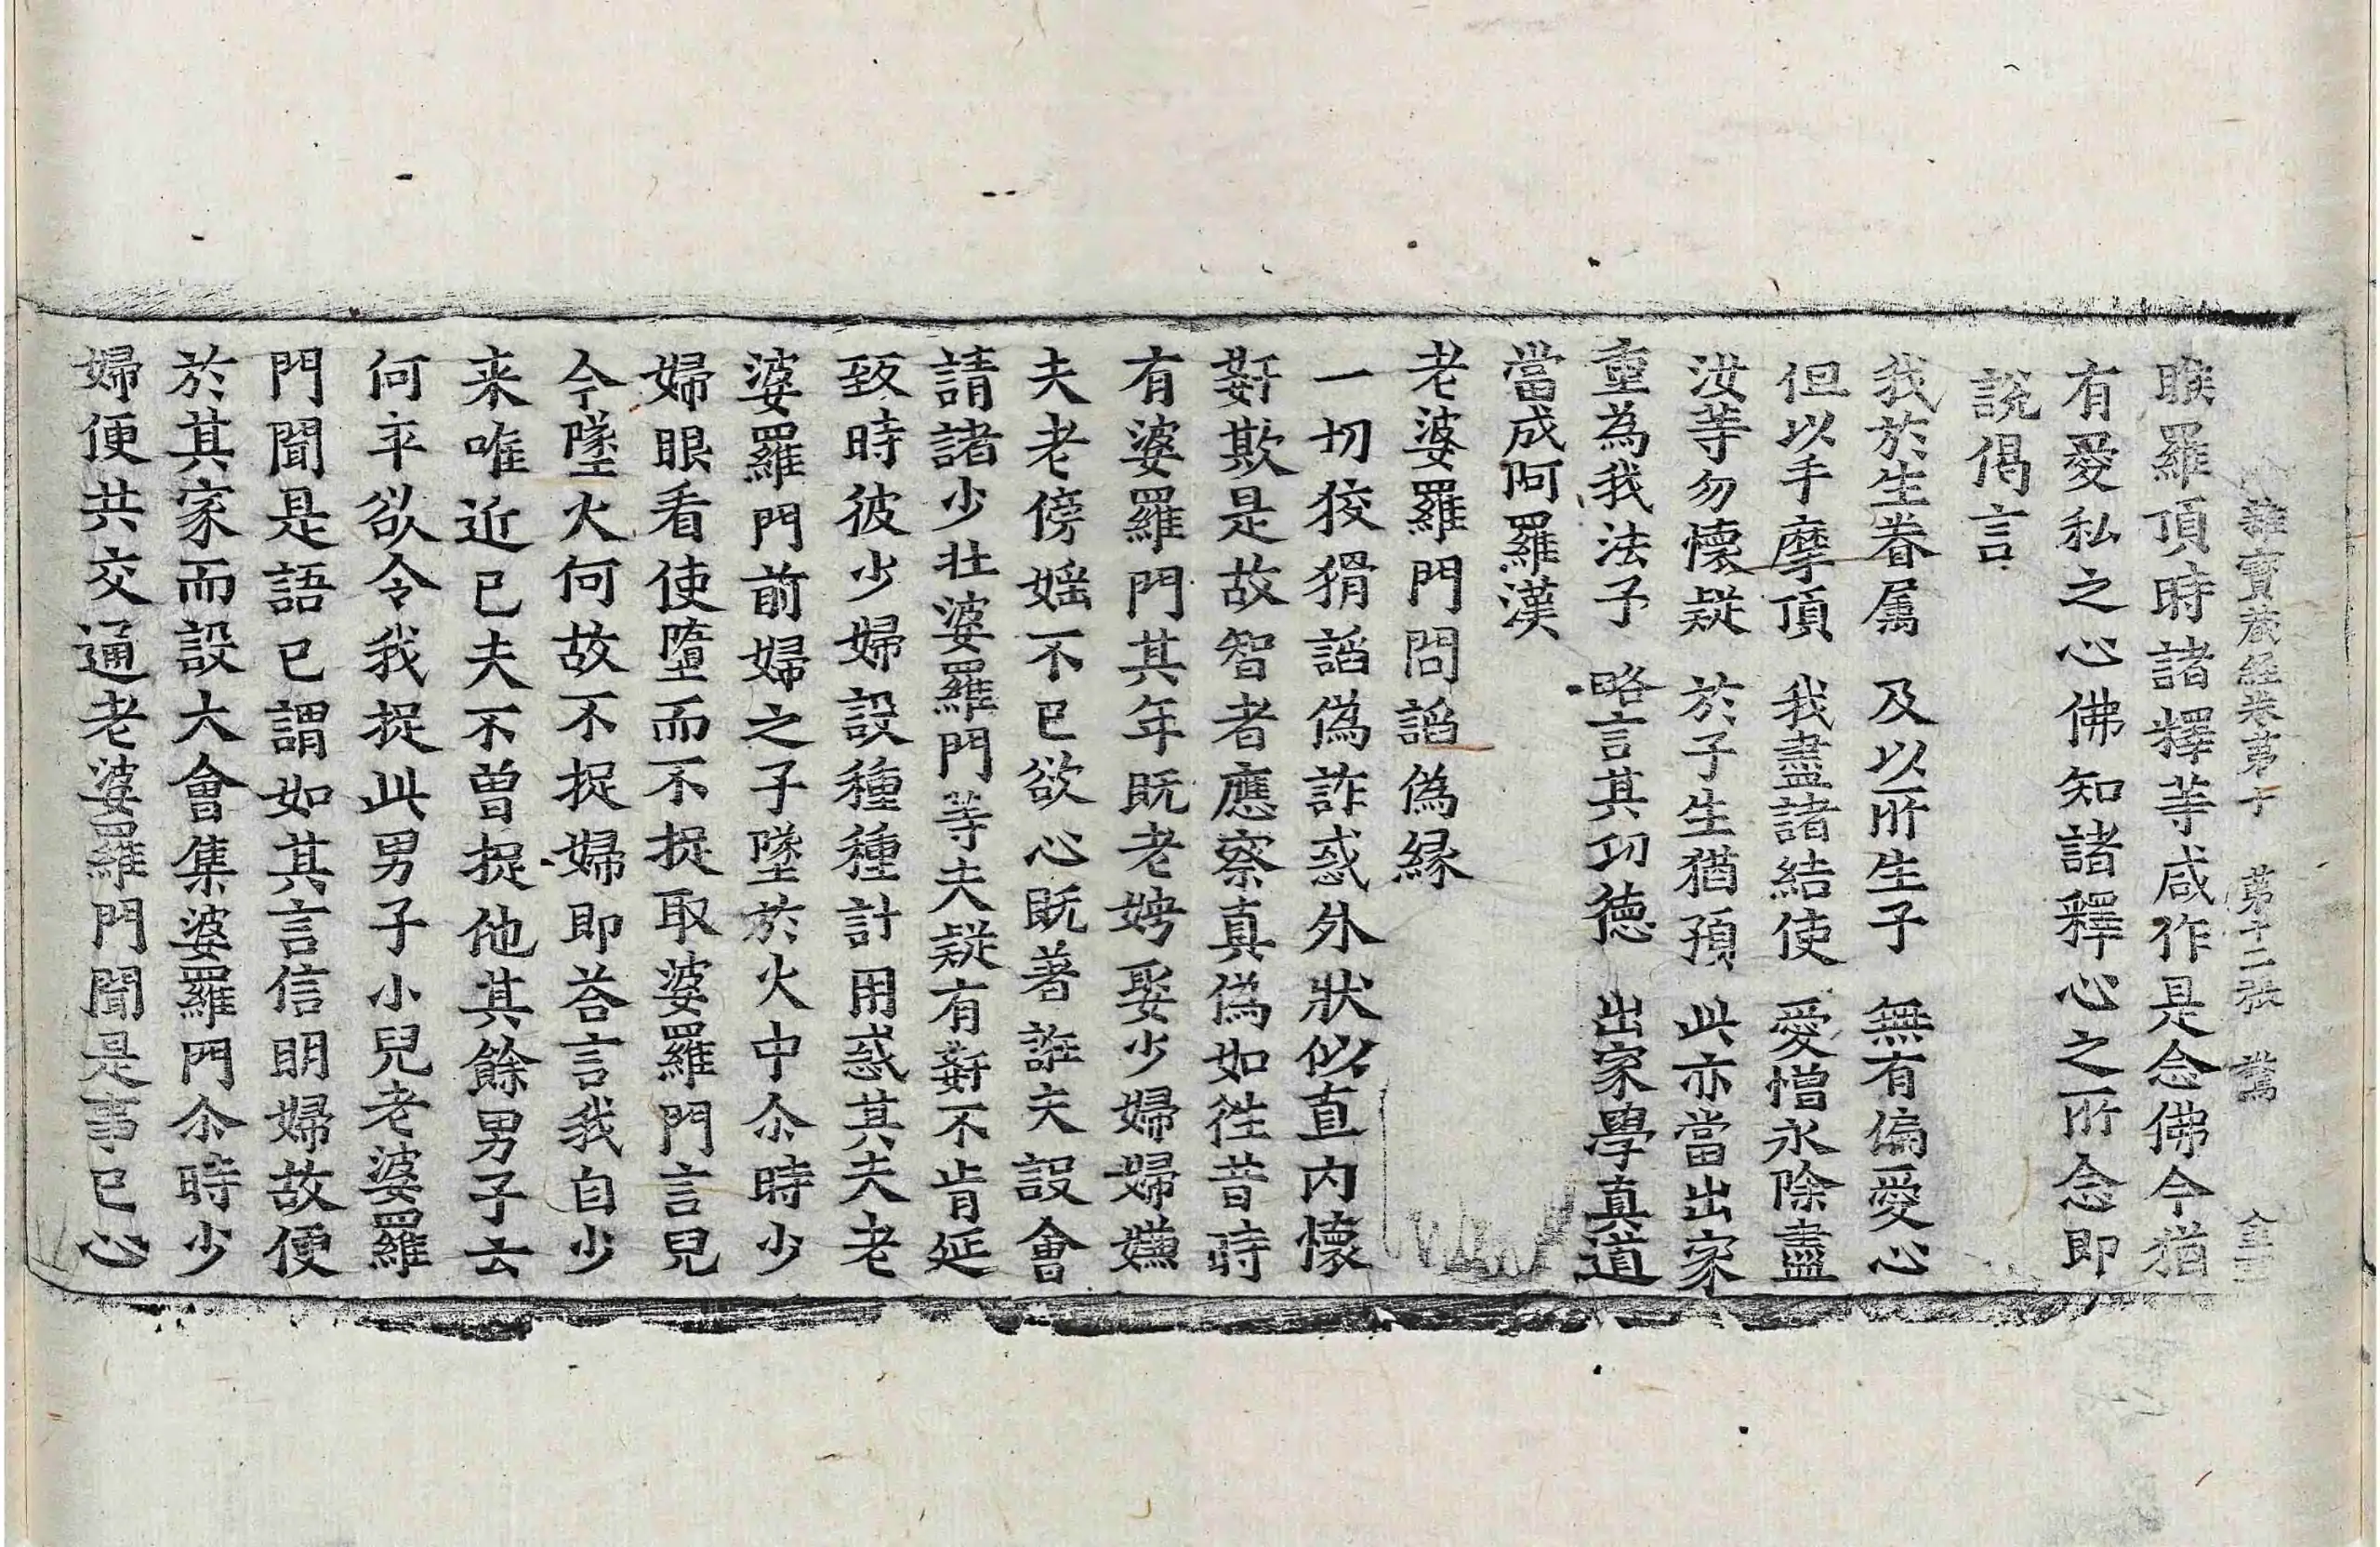 雜寶藏經卷第十 第十二張 驚
睺羅頂時諸釋等咸作是念佛今猶
有愛私之心佛知諸釋心之所念即
說偈言
我於生眷属 及以所生子 無有偏愛心
但以手摩頂 我盡諸結使 愛憎永除盡
汝等勿懷疑 於子生猶預 此亦當出家
重為我法子 略言其功德 出家學真道
當成阿羅漢
老婆羅門問謟偽縁
一切狡猾謟偽詐惑外狀似直内懷
姧欺是故智者應察真偽如徃昔時
有婆羅門其年既老娉娶少婦婦嫌
夫老傍婬不已欲心既著誑夫設會
請諸少壯婆羅門等夫疑有姧不肯延
致時彼少婦設種種計用惑其夫老
婆羅門前婦之子墜於火中尒時少
婦眼看使墮而不捉取婆羅門言兒
今墜火何故不捉婦即荅言我自少
来唯近已夫不曽捉他其餘男子云
何卒欲令我捉此男子小兒老婆羅
門聞是語已謂如其言信明婦故便
於其家而設大會集婆羅門尒時少
婦便共交通老婆羅門聞是事已心